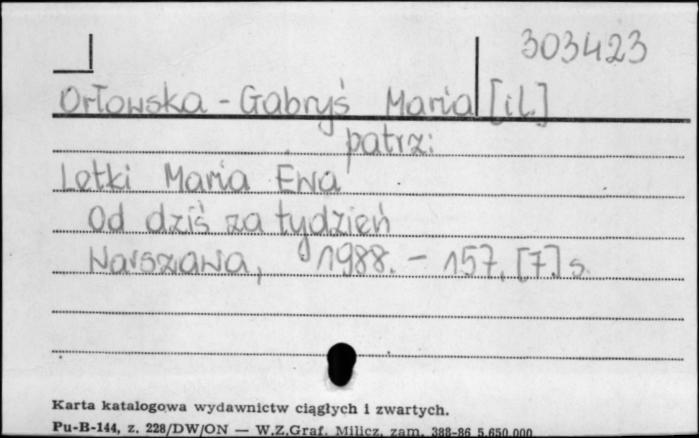 303423
Orłowska-Gabryś Maria [il.]
patrz:
Letki Maria Ewa
Od dziś za tydzień
Warszawa, 1988. - 157, [7] s.
Karta katalogowa wydawnictw ciągłych i zwartych.
Pu-B-144, z. 228/DW/ON — W.Z.Graf. Milicz, zam. 388-86 5.650.000